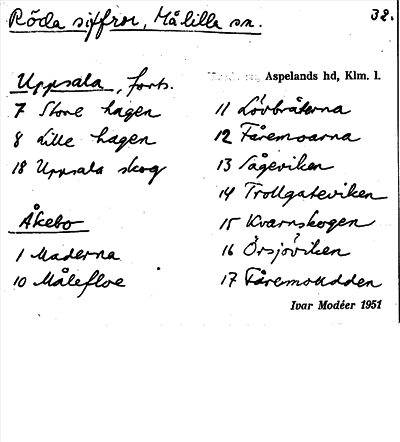 Röda siffror, Målilla sn.
32.
Aspelands hd, Klm. l.
Uppsala, forts.
7 Stora hagen
8 Lille hagen
18 Uppsala skog
Åkebo
1 Maderna
10 Målefloe
11 Lövbråterna
12 Fåremoarna
13 Sågeviken
14 Trollgateviken
15 Kvarnskogen
16 Örsjöviken
17 Fåremoudden
Ivar Modéer 1951